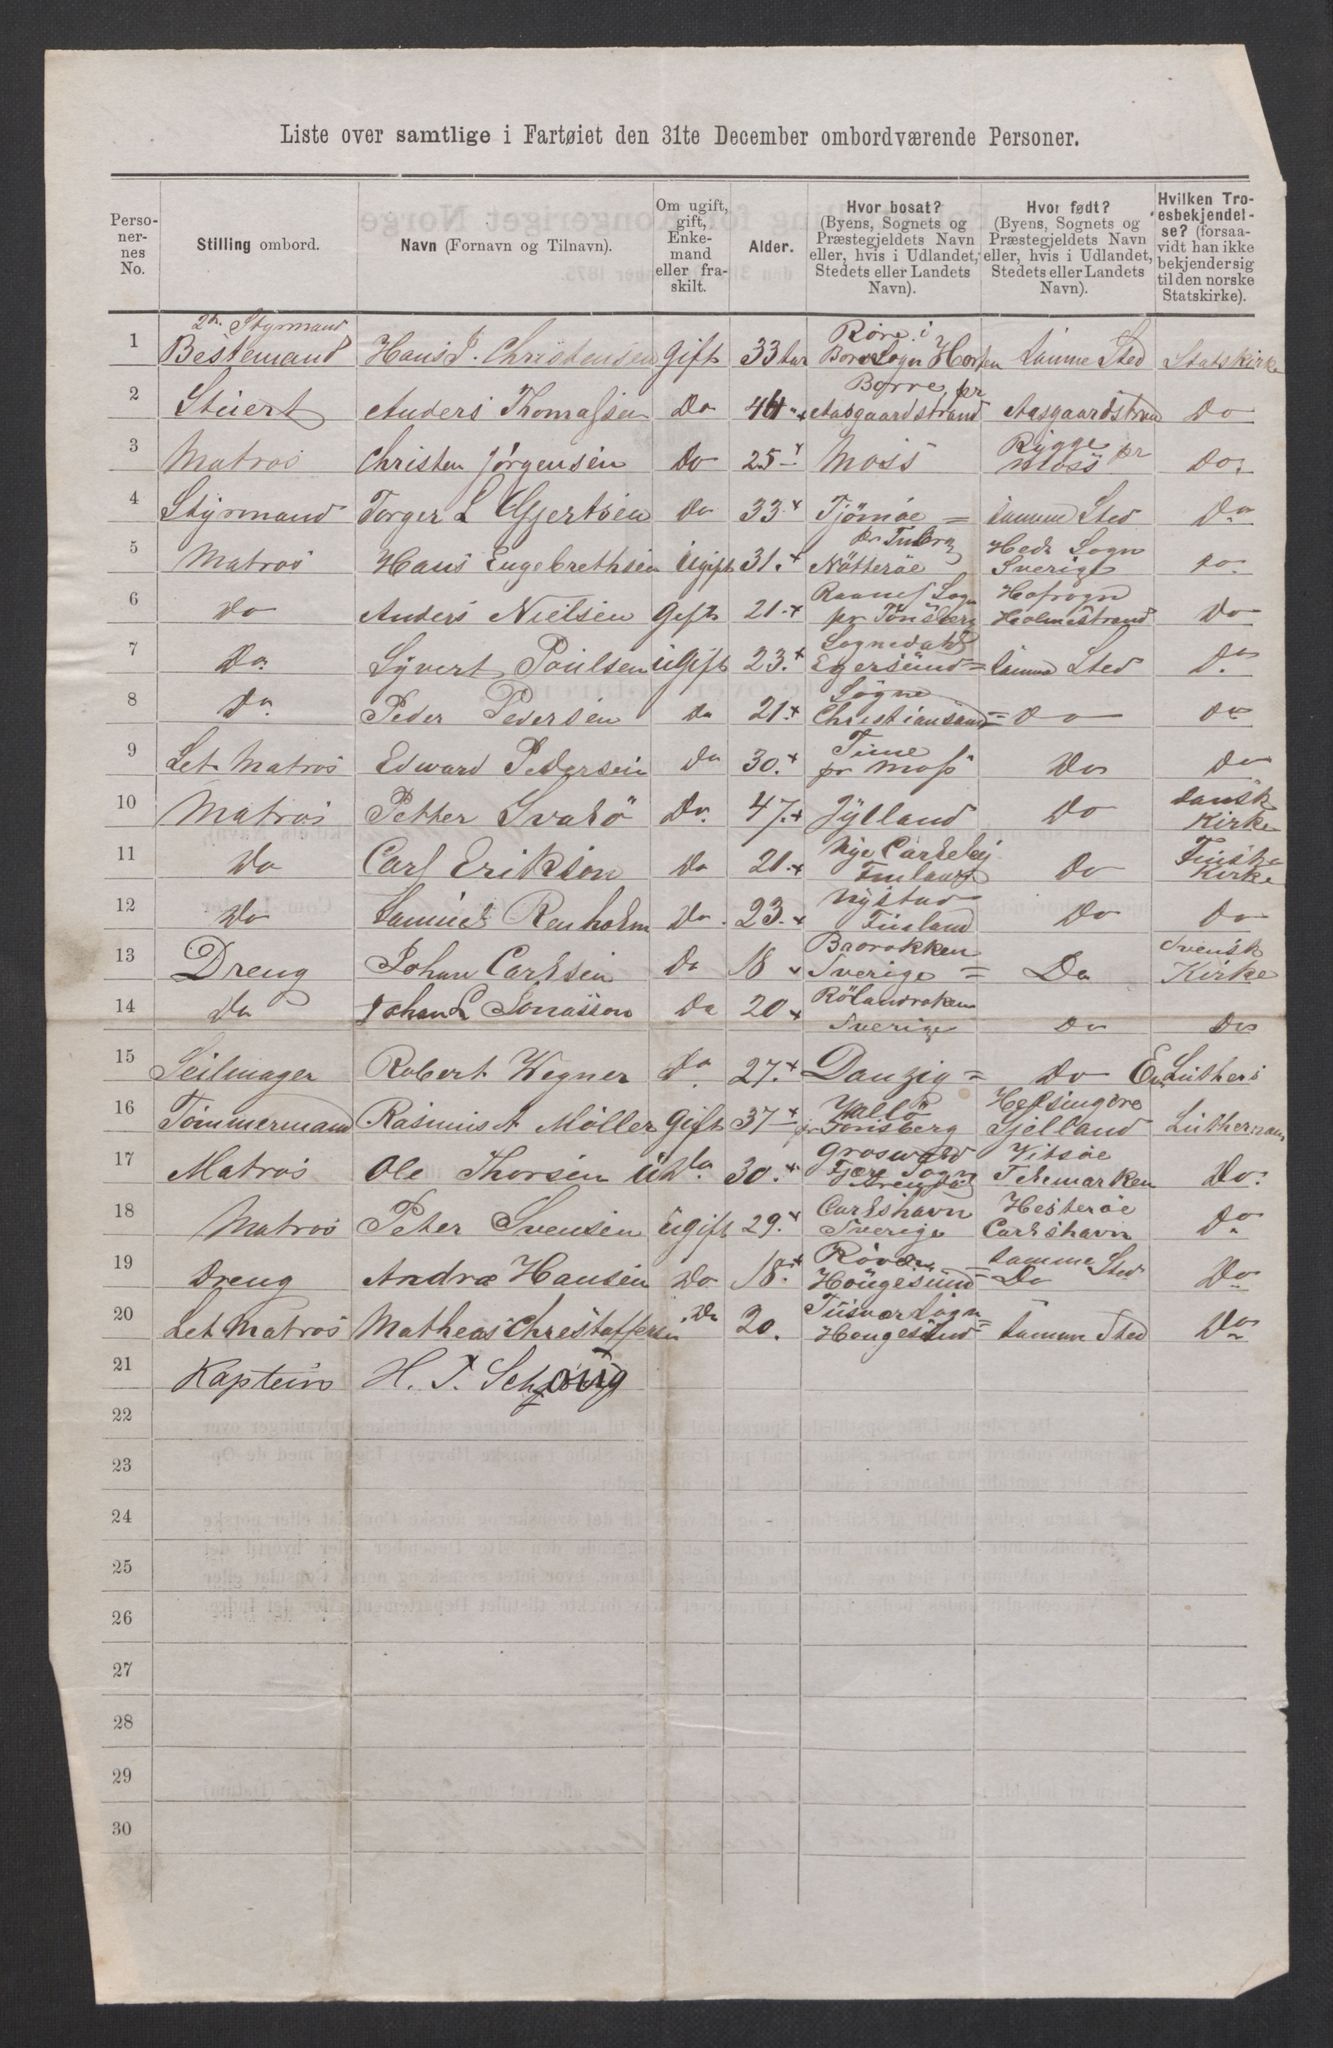 Liste over samtlige i Fartøiet den 31te December ombordværende Personer.
Perso-nernes No. | Stilling ombord. | Navn (Fornavn og Tilnavn). | Om ugift, gift, Enkemand eller fraskilt. | Alder. | Hvor bosat? (Byens, Sognets og Præstegjeldets Navn eller, hvis i Udlandet, Stedets eller Landets Navn). | Hvor født? (Byens, Sognets og Præstegjeldets Navn eller, hvis i Udlandet, Stedets eller Landets Navn). | Hvilken Troesbekjendelse? (forsaavidt han ikke bekjender sig til den norske Statskirke).
1 2den Styrmand Bestemand Hans J. Christensen Gift 33 aar Røre i Borre Sogn Horten Samme Sted Statskirke
2 Stuert Anders Thomassen Do 44 Borre pr Aasgaardstrand Aasgaardstran Do
3 Matros Christen Jørgensen Do 25 Moss Rygge pr Moss Do
4 Styrmand Torger L Gjertsen Do 33 Tjømøe = Samme Sted Do
5 Matros Hans Engebrethsen Ugift 31 Nøtterøe Hede Sogn Sverige Do
6 Do Anders Nielsen Gift 21 Sogn pr Tönsberg Hofsogn Holmestrand Do
7 Do Syvert Poulsen Ugift 23 Sognedahl Egersund = Samme Sted Do
8 Do Peder Pedersen Do 21 Søgne Christiansand = Do Do
9 Let Matros Edward Pedersen Do 30 pr Moss Do Do
10 Matros Petter Do 47 Jylland Do Dansk Kirke
11 Do Carl Erikson Do 21 Nye Carleby Finland Do Finske Kirke
12 Do Samuel Renholm Do 23 Nystad Finland Do Do
13 Dreng Johan Carlsen Do 18 Sverige = Do Svensk Kirke
14 Do Johan L Jonasson Do 20 Sverige Do Do
15 Seilmager Robert Wegner Do 27 Danzig = Do Ev Luthers
16 Tømmermand Rasmus A Möller Gift 37 Vallö pr Tönsberg Helsingøre Sjelland Lutheraner
17 Matros Ole Thorsen U 30 Sogn Telemarken Do
18 Matros Peter Svensen Ugift 29 Carlshavn Sverige Hesterøe Carlshavn Do
19 Dreng Andræ Hansen Do 18 Hougesund = Samme Sted Do Do
20 Let Matros Matheas Christoffersen Do 20. Tusvær Sogn Hougesund = Samme Sted Do
21 Kaptein H. J.
22
23
24
25
26
27
28
29
30